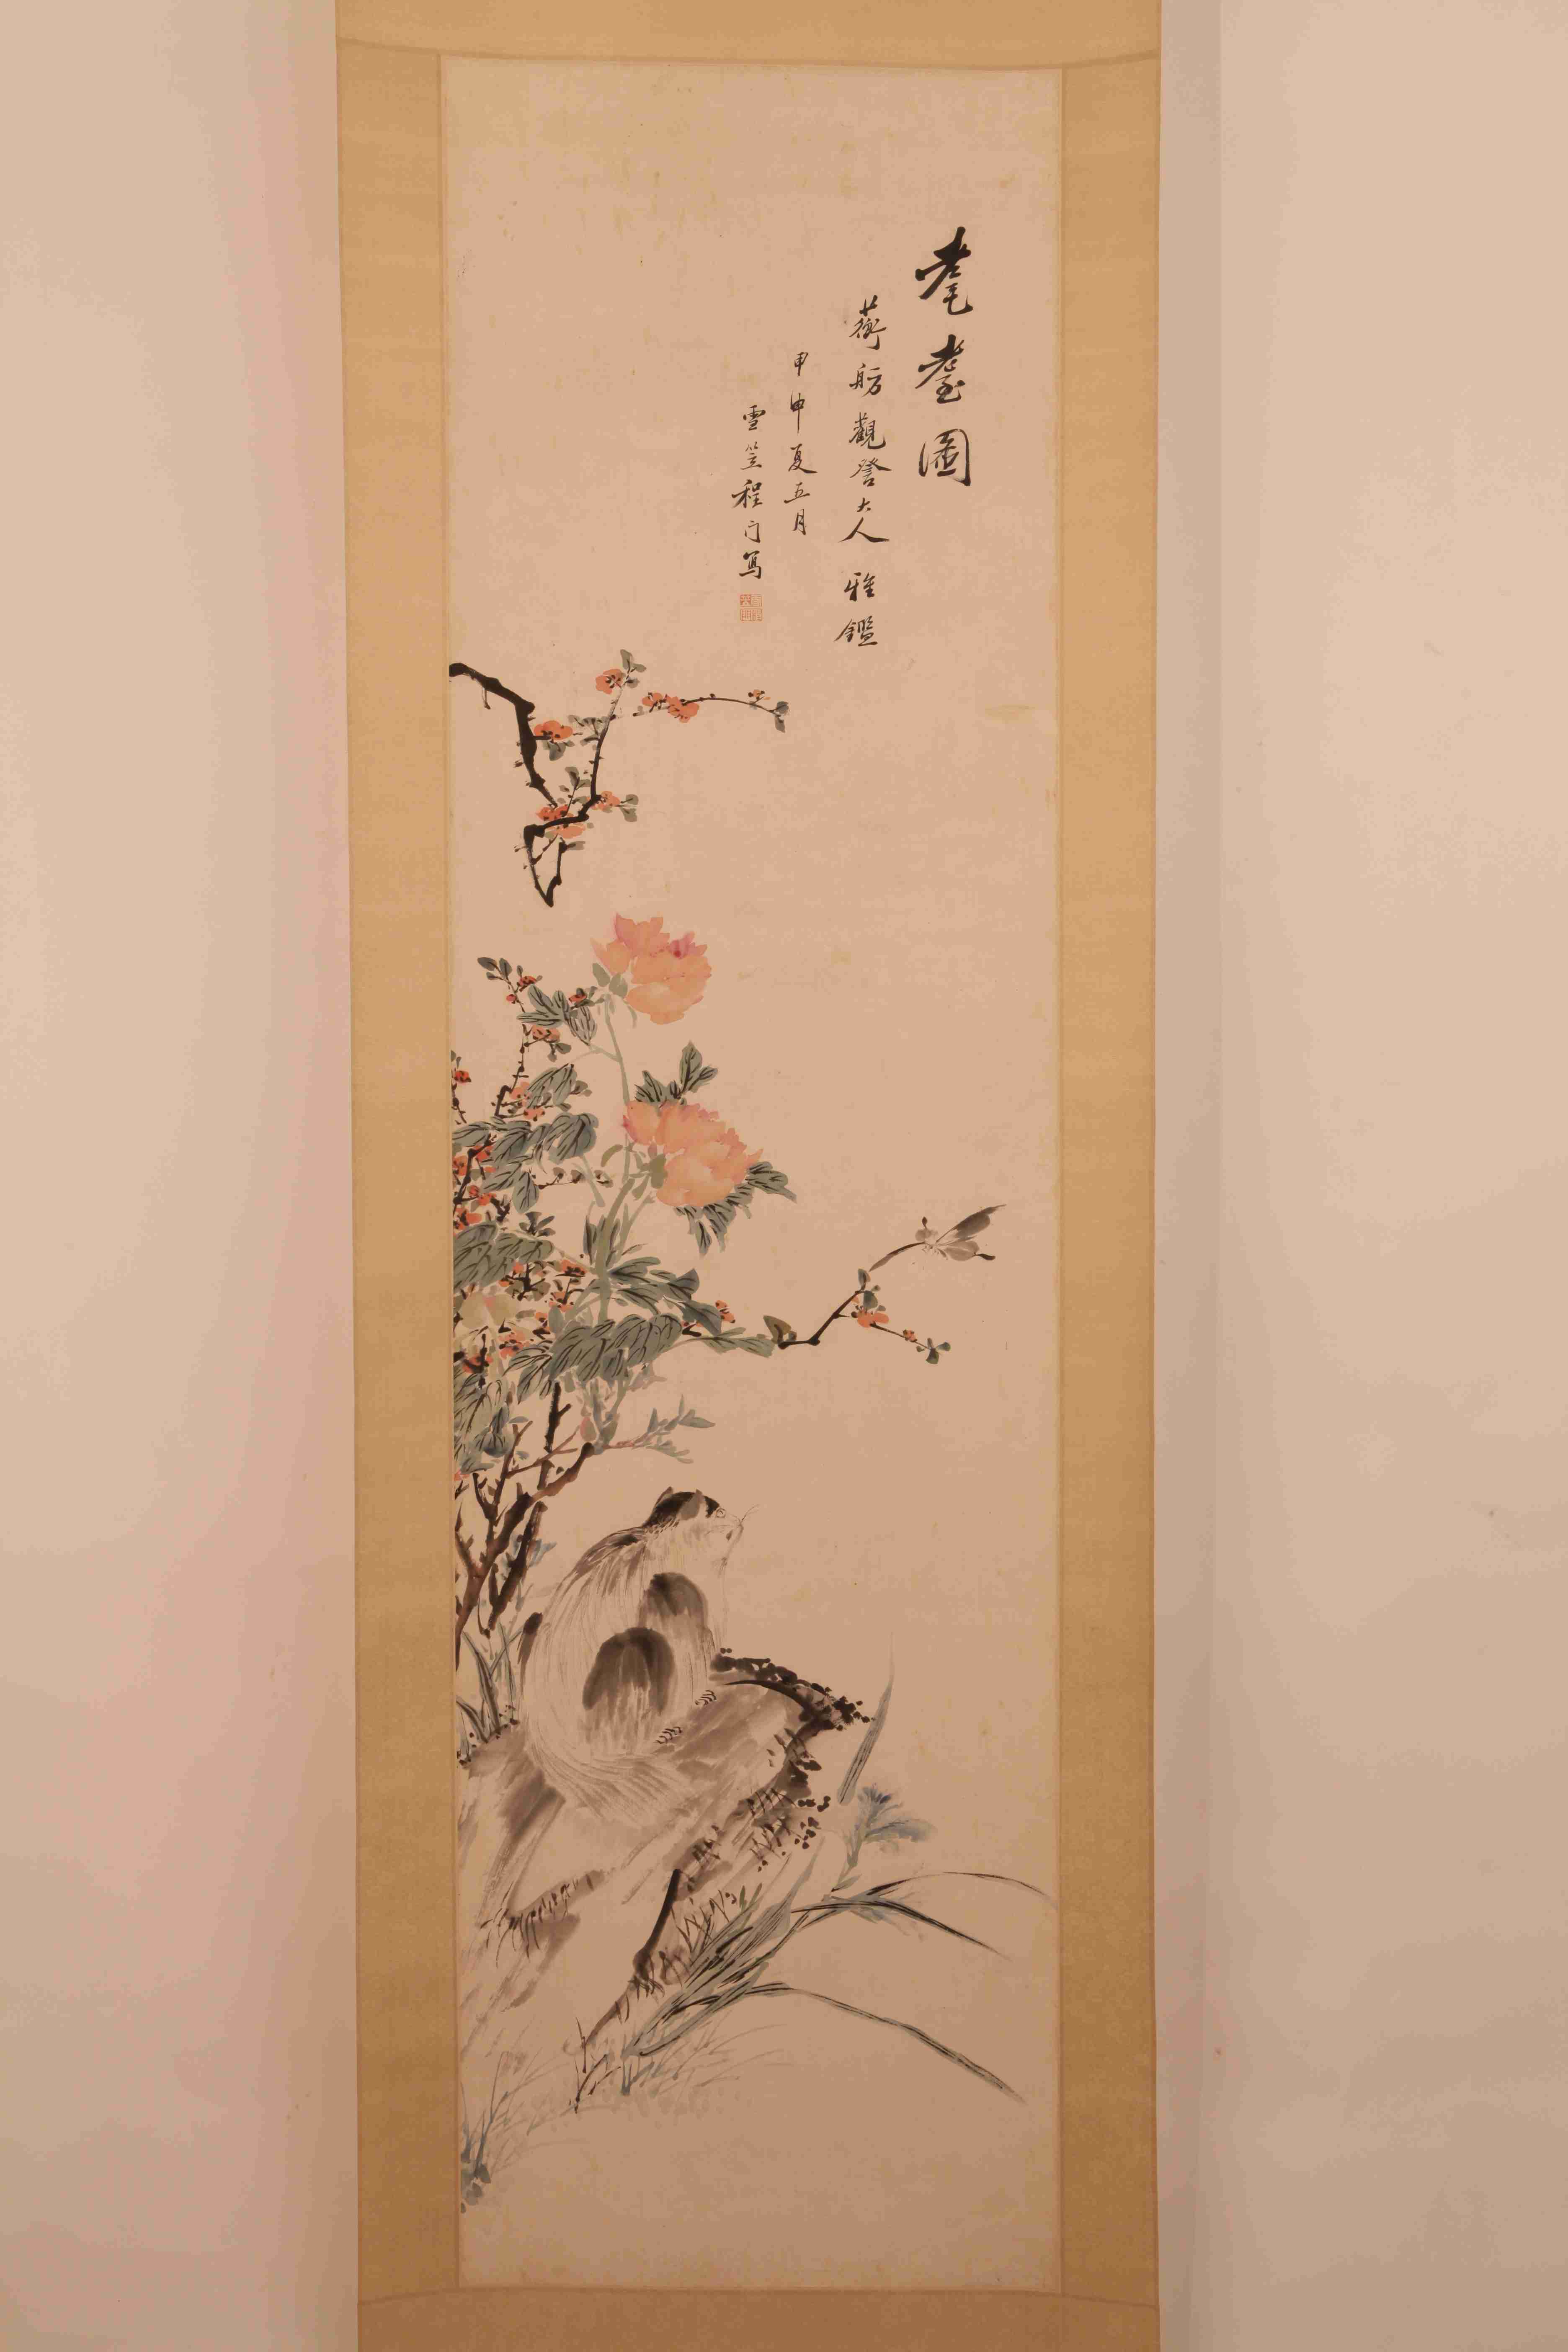 耄耋圖
蘅舫觀詧大人雅鑑
甲申夏五月
雪笠程门寫